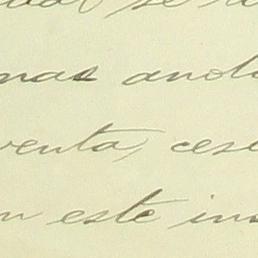 se
nas anot
venta, ces
n este in